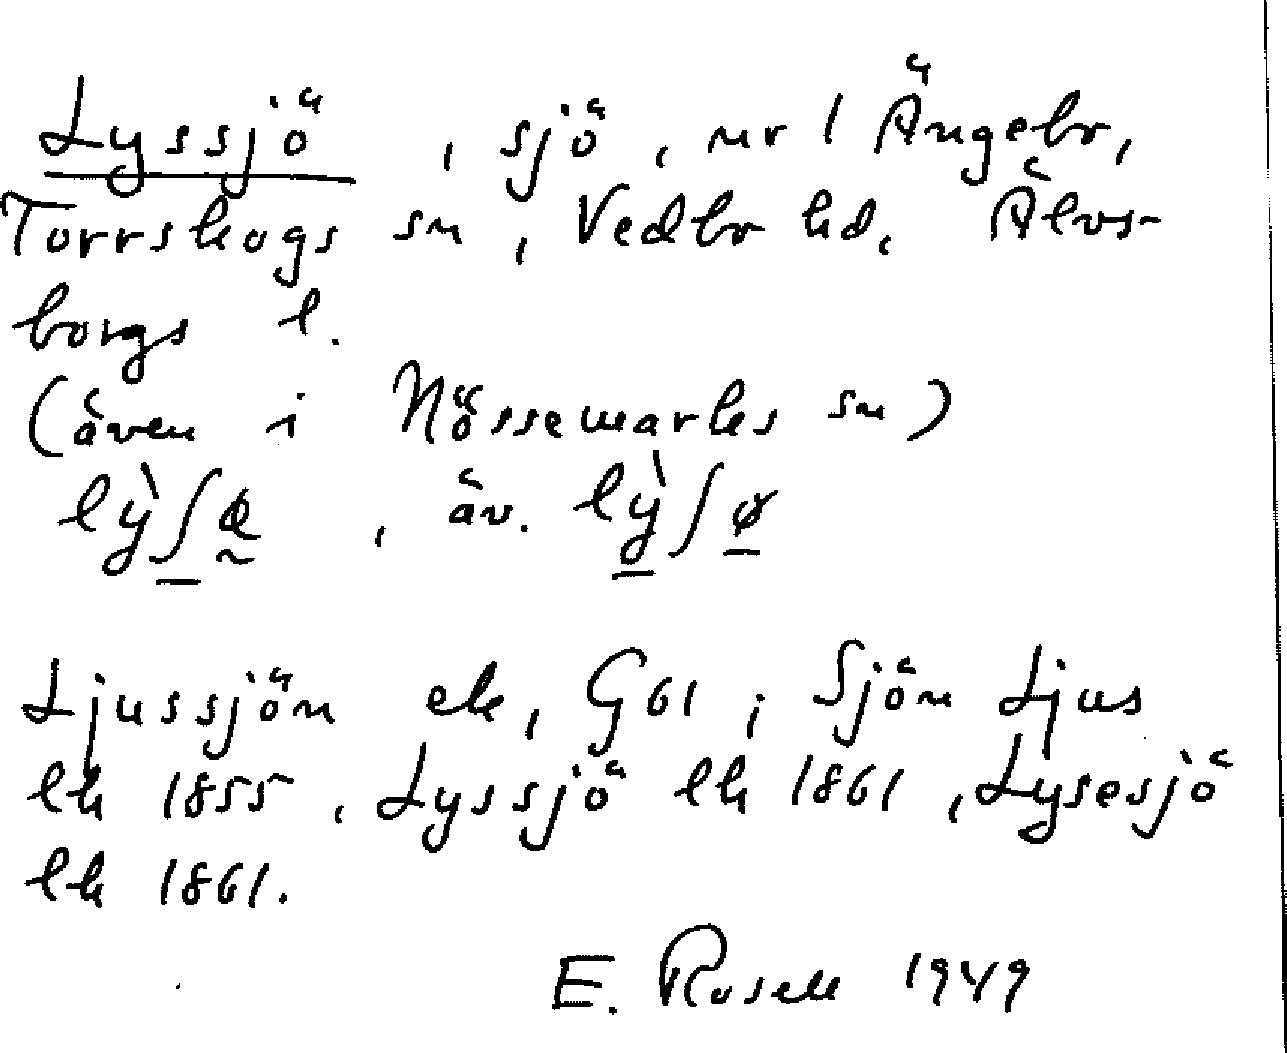 Lyssjö, sjö, nr 1 Ängebr,
Torrskogs sn, Vedbo hd, Älvs-
borgs l.
(även i Nössemarks sn)
, äv.
Ljussjön ek, G61; Sjön Ljus
lh 1855, Lyssjö lh 1861, Lysesjö
lh 1861.
E. Rosell 1949